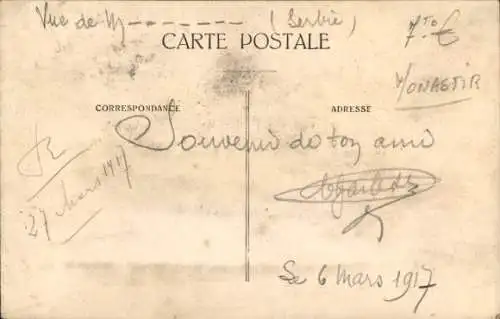 Vue de M------- (Serbie)
7.to €
CARTE POSTALE
MONASTIR
CORRESPONDANCE
ADRESSE
Souvenir de ton ami
27 Mars 1917
Le 6 mars 1917